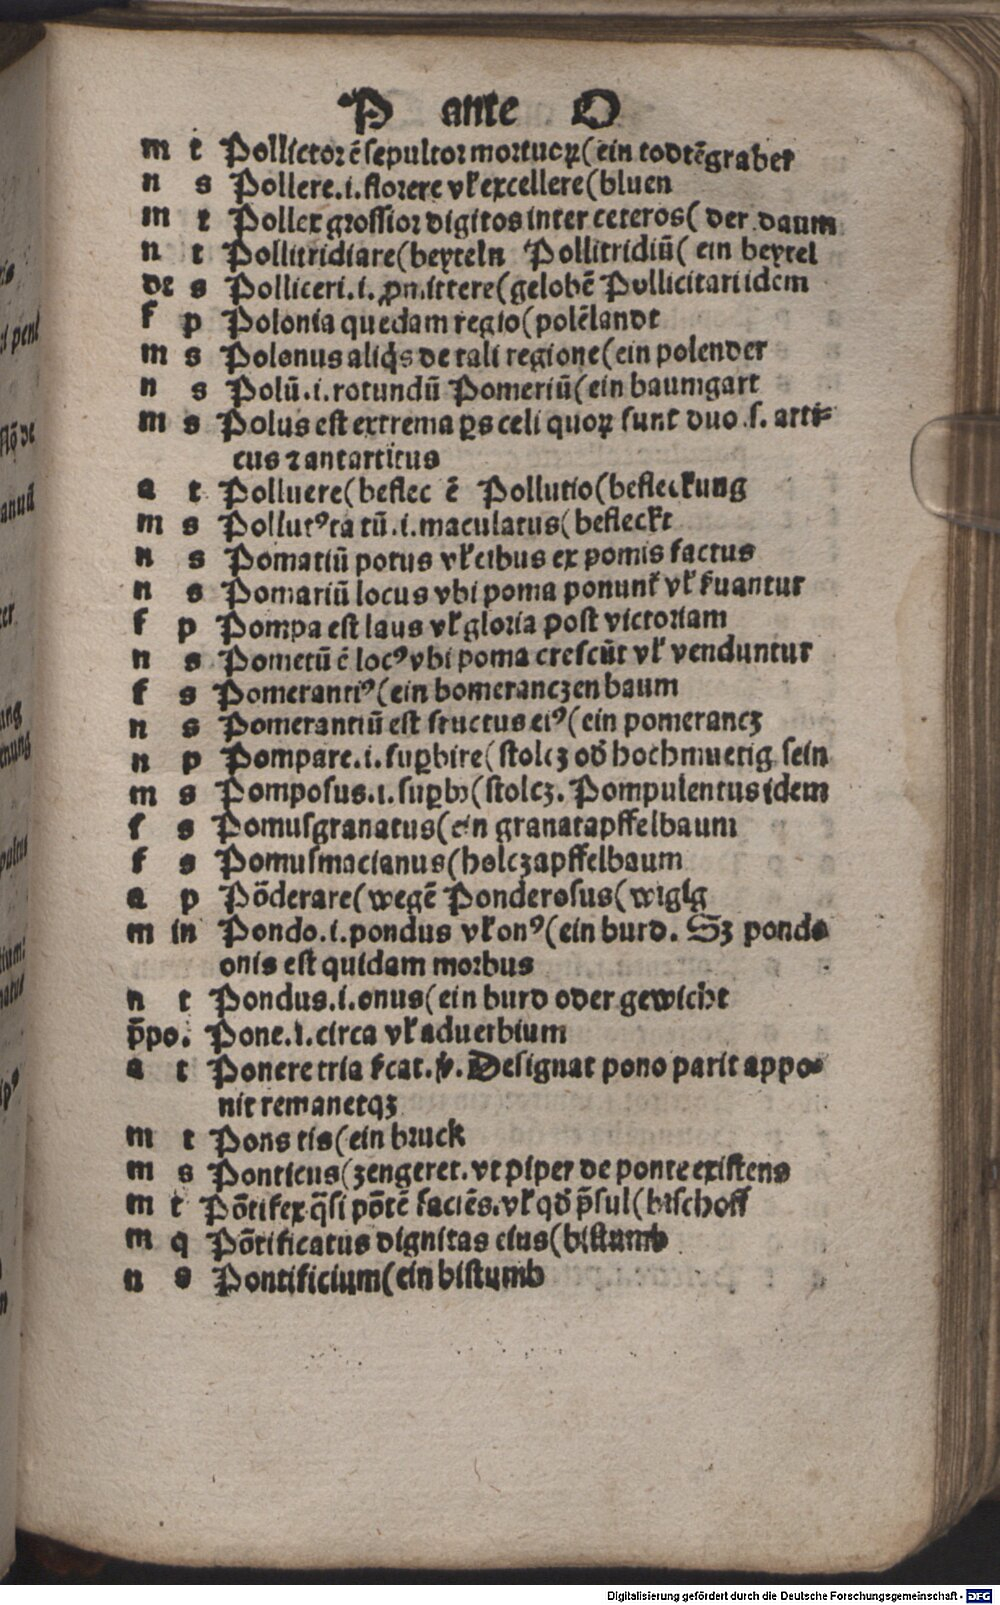 P ante O
m t Pollictor ē sepultor mortuoꝝ (ein todtēgraber
n s Pollere .i. florere vꝉ excellere (bluen
m t Pollex grossior digitos inter ceteros (der daum
n t Pollitridiare (beyteln Pollitridiū (ein beytel
de s Polliceri .i. ꝓmittere (gelobē Pollicitari idem
f p Polonia quedam regio (polēlandt
m s Polonus aliq̇s de tali regione (ein polender
n s Polū .i. rotundū Pomeriū (ein baumgart
m s Polus est extrema ꝑs celi quoꝝ sunt duo .s. arti⸗
cus ⁊ antarticus
a t Polluere (beflec ē Pollutio (befleckung
m s Pollutꝰ ta tū .i. maculatus (befleckt
n s Pomatiū potus vꝉ cibus ex pomis factus
n s Pomariū locus vbi poma ponunt̄ vꝉ ẜuantur
f p Pompa est laus vꝉ gloria post victoriam
n s Pometū ē locꝰ vbi poma crescūt vꝉ venduntur
f s Pomerantiꝰ (ein bomeranczen baum
n s Pomerantiū est fructus eiꝰ (ein pomerancz
n p Pompare .i. suꝑbire (stolcz od̕ hochmuetig sein
m s Pomposus .i. suꝑbꝰ (stolcz. Pompulentus idem
f s Pomusgranatus (ein granatapffelbaum
f s Pomusmacianus (holczapffelbaum
a p Pōderare (wegē Ponderosus (wigig
m in Pondo .i. pondus vꝉ onꝰ (ein burd. Sꝫ pondo
onis est quidam morbus
n t Pondus .i. onus (ein burd oder gewicht
p̄po. Pone .i. circa vꝉ aduerbium
a t Ponere tria ẜcat. ꝟ. Designat pono parit appo⸗
nit remanetqꝫ
m t Pons tis (ein bruck
m s Ponticus (zengeret. vt piper de ponte existens
m t Pōtifex q̄si pōtē faciēs. vꝉ qd̕ p̄sul (bischoff
m q Pōtificatus dignitas eius (bistumb
n s Pontificium (ein bistumb
Digitalisierung gefördert durch die Deutsche Forschungsgemeinschaft - DFG